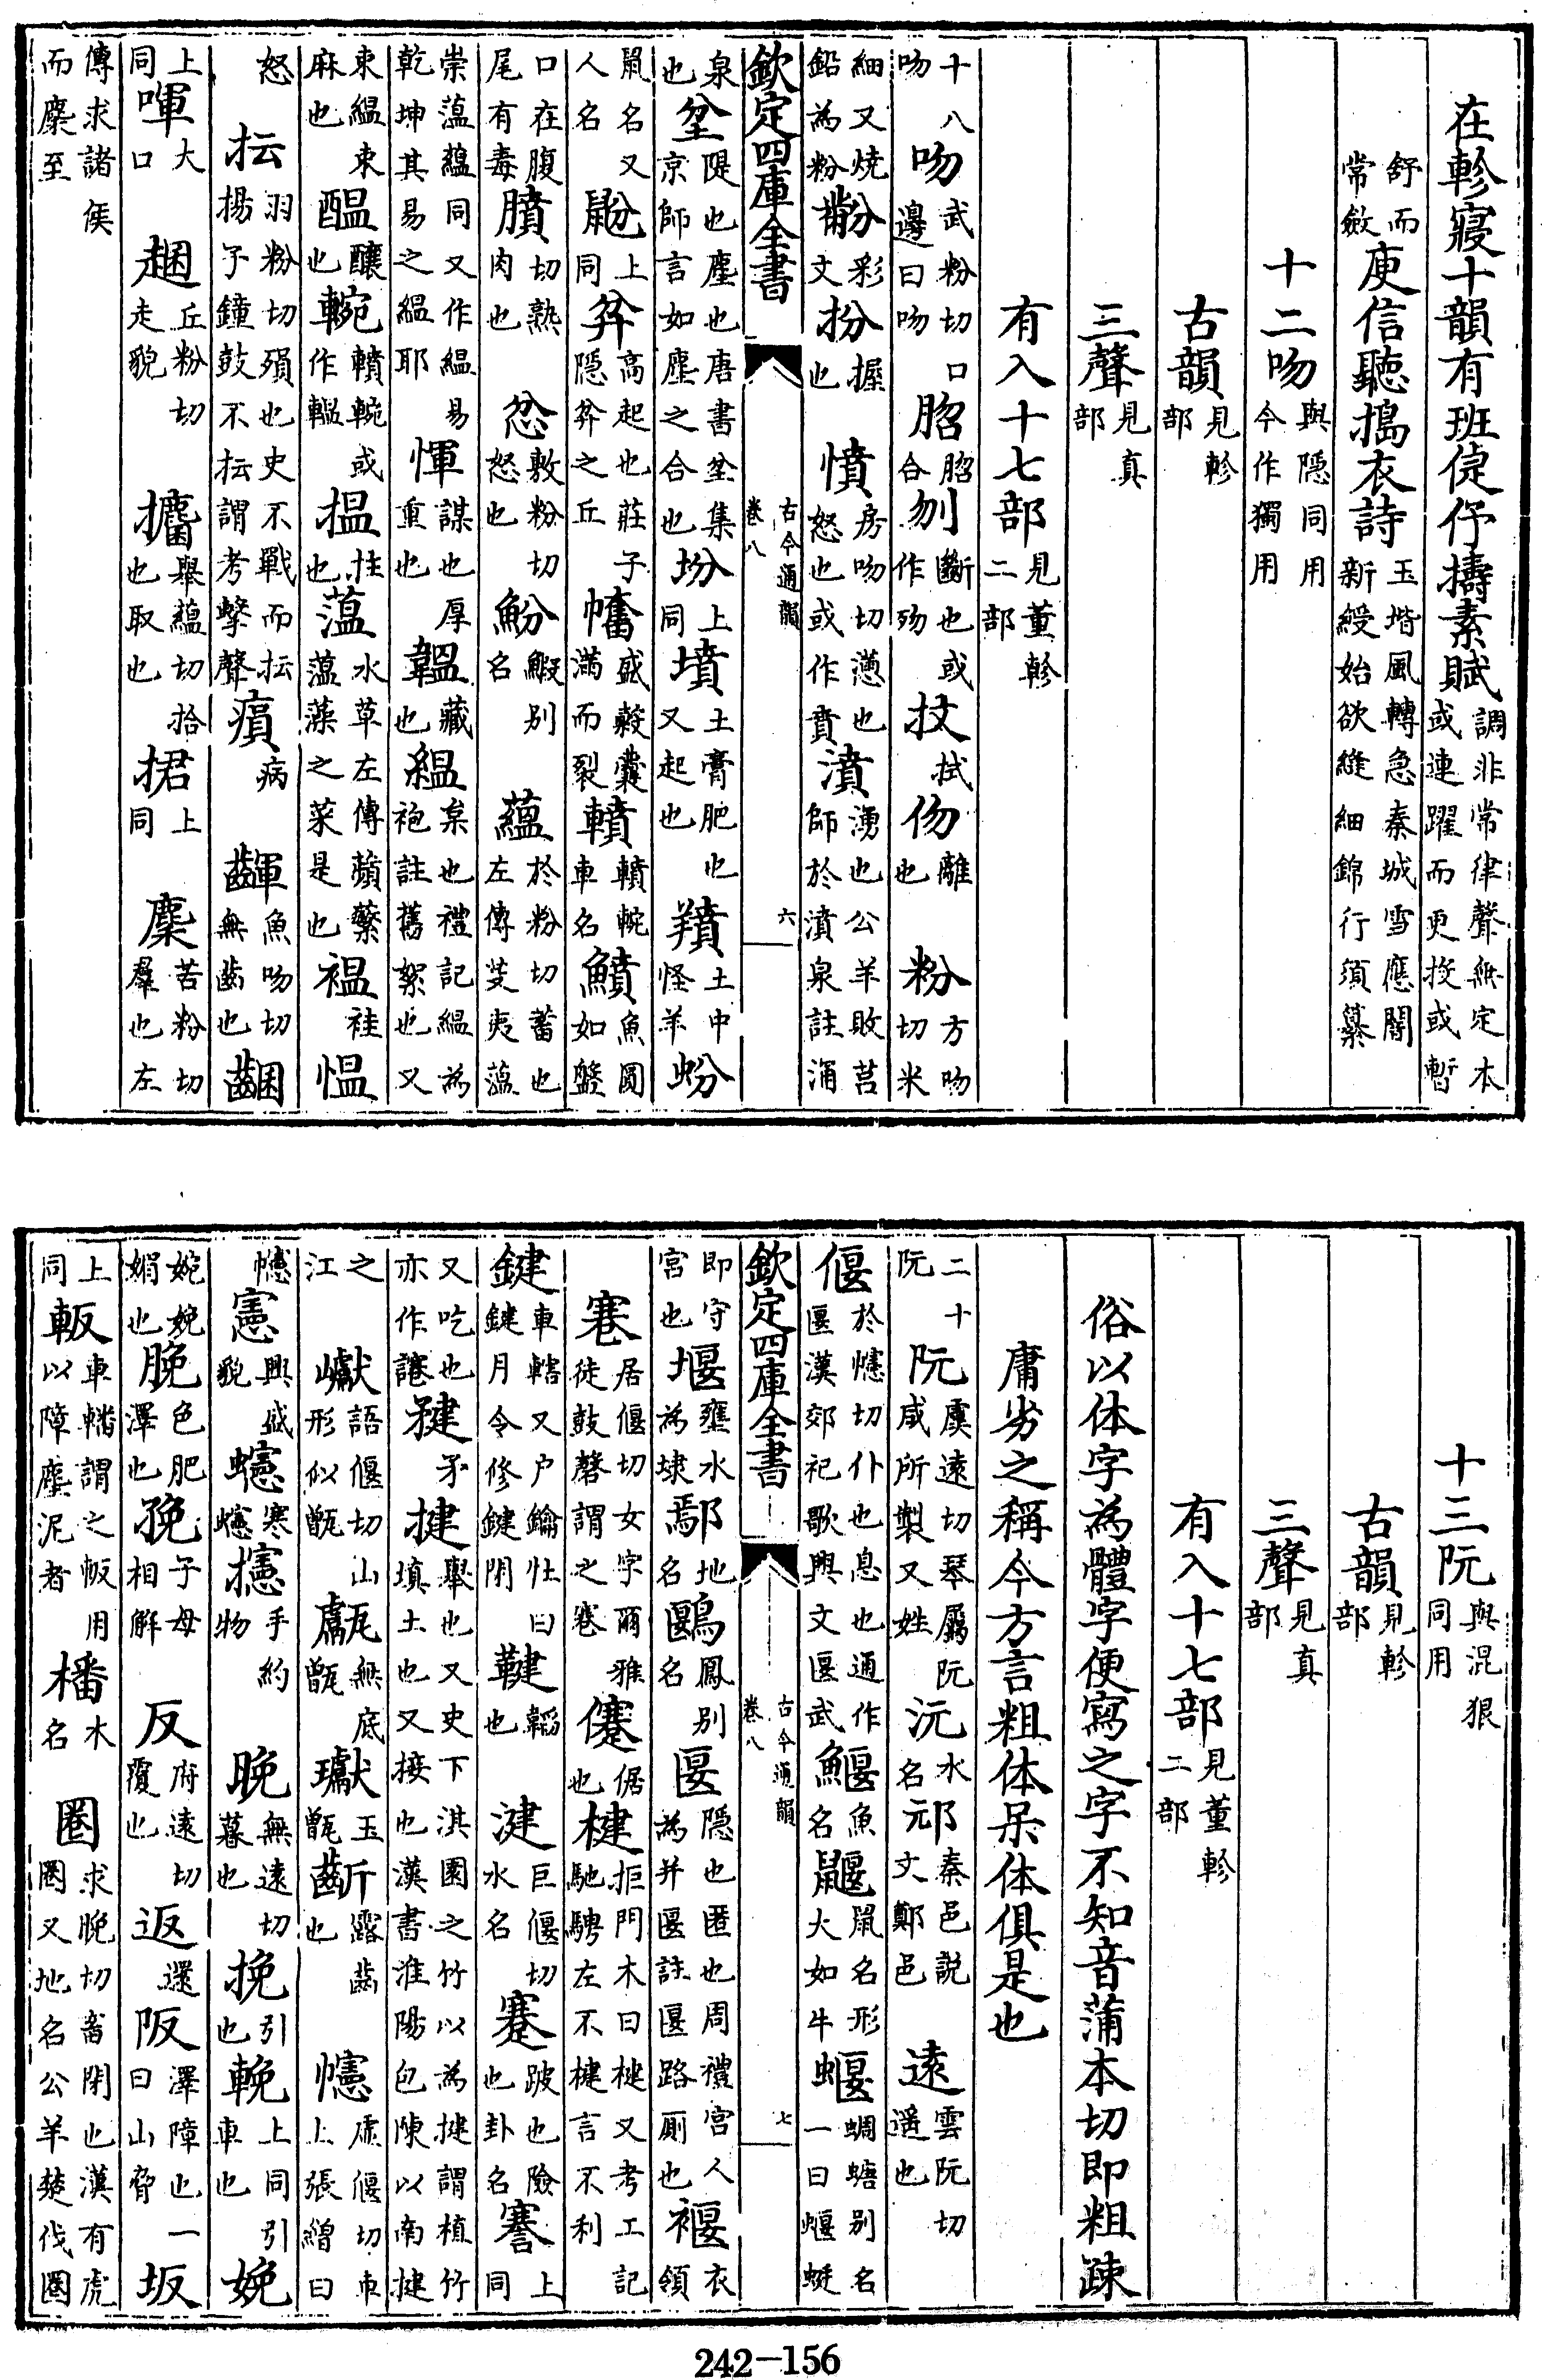 在軫寢十韻有班倢伃擣素賦調非常律聲無定本或連躍而更投或暫
舒而常斂庾信聽搗衣詩玉堦風轉急秦城雪應闇新綬始欲縫細錦行須纂
十二吻與隱同用今作獨用
古韻見軫部
三聲見真部
有入十七部見董軫二部
十八吻吻武粉切口邊曰吻䐇䐇合刎斷也或作歾抆拭伆離也粉方吻切米
細又燒鉛為粉黺彩文扮握也憤房吻切懣也怒也或作賁濆湧也公羊敗莒師於濆泉註涌
欽定四庫全書 古今通韻卷八 六
泉也坌隄也塵也唐書坌集京師言如塵之合也坋上同墳土膏肥也又起也羵土中怪羊蚡
鼠名又人名鼢上同弅高起也莊子隱弅之丘幡盛穀囊滿而裂轒轒輓車名鱝魚圓如盤
口在腹尾有毒膹切熟肉也忿敷粉切怒也魵鰕别名蘊於粉切蓄也左傳芟夷薀
崇薀蘊同又作緼易乾坤其易之緼耶惲謀也厚重也韞藏也緼枲也禮記緼為袍註舊絮也又
束緼束麻也醖釀也輓轒輓或作轀揾拄也薀水草左傳蘋蘩薀藻之菜是也褞袿愠
怒抎羽粉切殞也史不戰而抎揚子鐘鼓不抎謂考擊聲㿎病齳魚吻切無齒也齫
上同喗大口趜丘粉切走貌攟舉蘊切拾也取也捃上同麇苦粉切羣也左
傳求諸侯而麇至
十三阮與混狠同用
古韻見軫部
三聲見真部
有入十七部見董軫二部
俗以体字為體字便寫之字不知音蒲本切即粗疎
庸劣之稱今方言粗体呆体俱是也
二十阮阮虞遠切琴屬阮咸所製又姓沅水名邧秦邑説文鄭邑遠雲阮切遥也
偃於幰切仆也息也通作匽漢郊祀歌興文匽武鰋魚名鼴鼠名形大如牛蝘蜩螗别名一曰蝘蜓
欽定四庫全書 古今通韻卷八 七
即守宮也堰壅水為埭鄢地名鶠鳳别名匽隱也匿也周禮宮人為井匽註匽路厠也褗衣領
寋居偃切女字爾雅徒鼓磬謂之寋㒄倨也楗拒門木曰楗又考工記馳騁左不楗言不利
鍵車轄又户鑰牡曰鍵月令修鍵閉鞬韜也湕巨偃切水名蹇跛也險也卦名謇上同
又吃也亦作讓䂓矛揵舉也又史下淇園之竹以為揵謂植竹填土也又接也漢書淮陽包陳以南揵
之江巘語偃切山形似甑甗無底甑瓛玉甑齗露齒也幰虚偃切車上張繒曰
幰憲興盛貌蟪寒蟪攇手約物晚無遠切暮也挽引也輓上同引車也娩
婉娩媚也脕色肥澤也㝃子母相解反府遠切覆也返還阪澤障也一曰山脅坂
上同軬車轓謂之軬用以障塵泥者橎木名圈求晚切畜閉也漢有虎圈又地名公羊楚伐圈
242-156